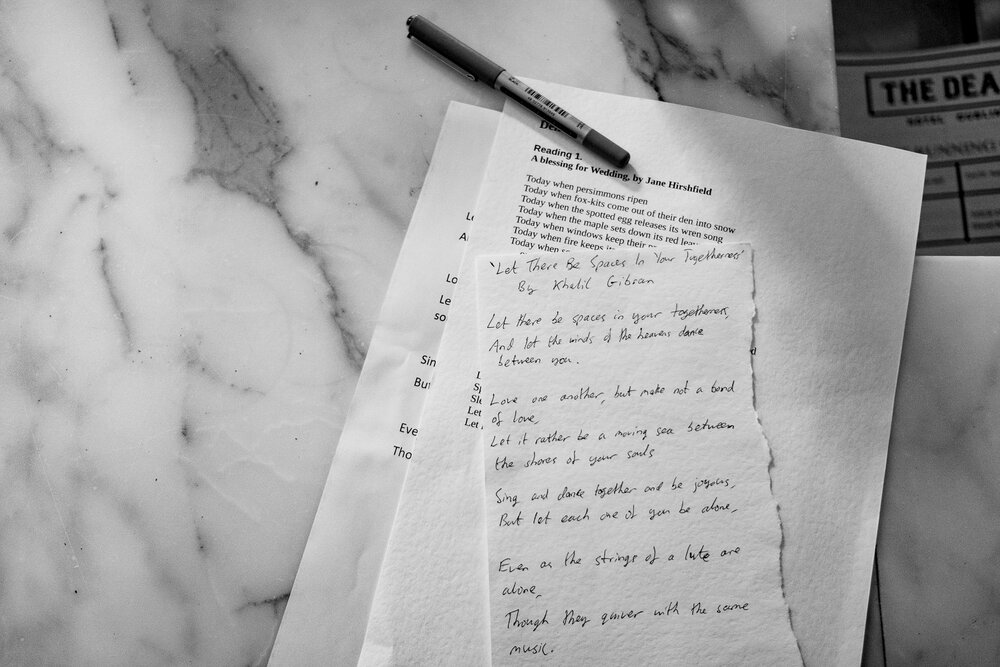 THE DEA
Reading 1.
A blessing for Wedding, by Jane Hirshfield
Today when persimmons ripen
Today when fox-kits come out of their den into snow
Today when the spotted egg releases its wren song
Today when the maple sets down its red
Today when windows keep their
Today when fire keeps
Today when
'Let There Be Spaces In Your Togetherness'
By Khalil Gibran
Let there be spaces in your togetherness,
And let the winds of the heavens dance
between you.
Love one another, but make not a bond
of love,
Let it rather be a moving sea between
the shores of your souls
Sing and dance together and be joyous,
But let each one of you be alone,
Even as the strings of a lute are
alone,
Though they quiver with the same
music.
Lo
Le
so
Sin
Bu
Eve
Tho
L
Sp
Sle
Let
Let